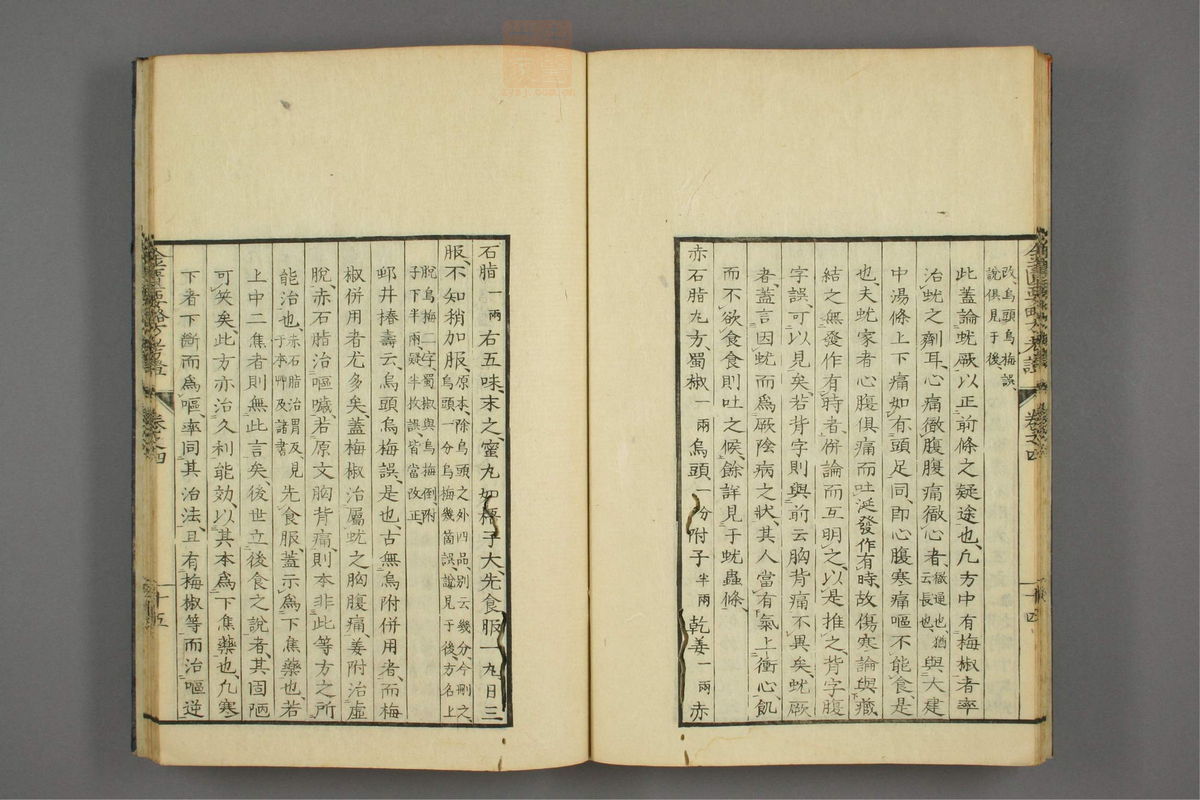 改、烏頭烏梅誤、
說俱見于後、
此蓋論蚘厥以正前條之疑途也、凡方中有梅椒者率
治蚘之劑耳、心痛徹腹腹痛徹心者、徹通也、猶云長也、與大建
中湯條上下痛如有頭足同、即心腹寒痛嘔不能食、是
也、夫蚘家者心腹俱痛而吐涎發作有時、故傷寒論與藏
結之無發作有時者、併論而互明之、以是推之、背字腹
字誤、可以見矣、若背字則與前云胸背痛不異矣、蚘厥
者、蓋言因蚘而為厥陰病之狀、其人當有氣上衝心、飢
而不欲食食則吐之候、餘詳見于蚘蟲條、
赤石脂丸方、蜀椒一兩烏頭、一分附子半兩乾姜一兩赤
石脂一兩右五味、末之、蜜丸如梧子大、先食服一丸、日三
服、不知稍加服、原本、除烏頭之外四品別云幾分、今刪之、烏頭一分烏梅幾箇誤、說見于後、方名上
脫烏梅二字、蜀椒與烏梅倒、附子下半兩、疑半枚誤、皆當改正、
邨井椿壽云、烏頭烏梅誤、是也、古無烏附併用者、而梅
椒併用者尤多矣、蓋梅椒治屬蚘之胸腹痛、姜附治虛
脫、赤石脂治嘔噦、若原文胸背痛、則本非此等方之所
能治也、赤石脂治胃反見于本艸及諸書先食服、蓋示為下焦藥也、若
上中二焦者則無此言矣、後世立後食之說者、其固陋
可笑矣、此方亦治久利能効、以其本為下焦藥也、凡寒
下者下斷而為嘔、率同其治法、且有梅椒等而治嘔逆
金匱要略方考證
卷之四
十四
十五